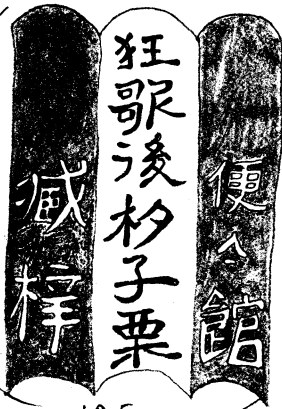 便々館
狂歌後杓子栗
蔵梓